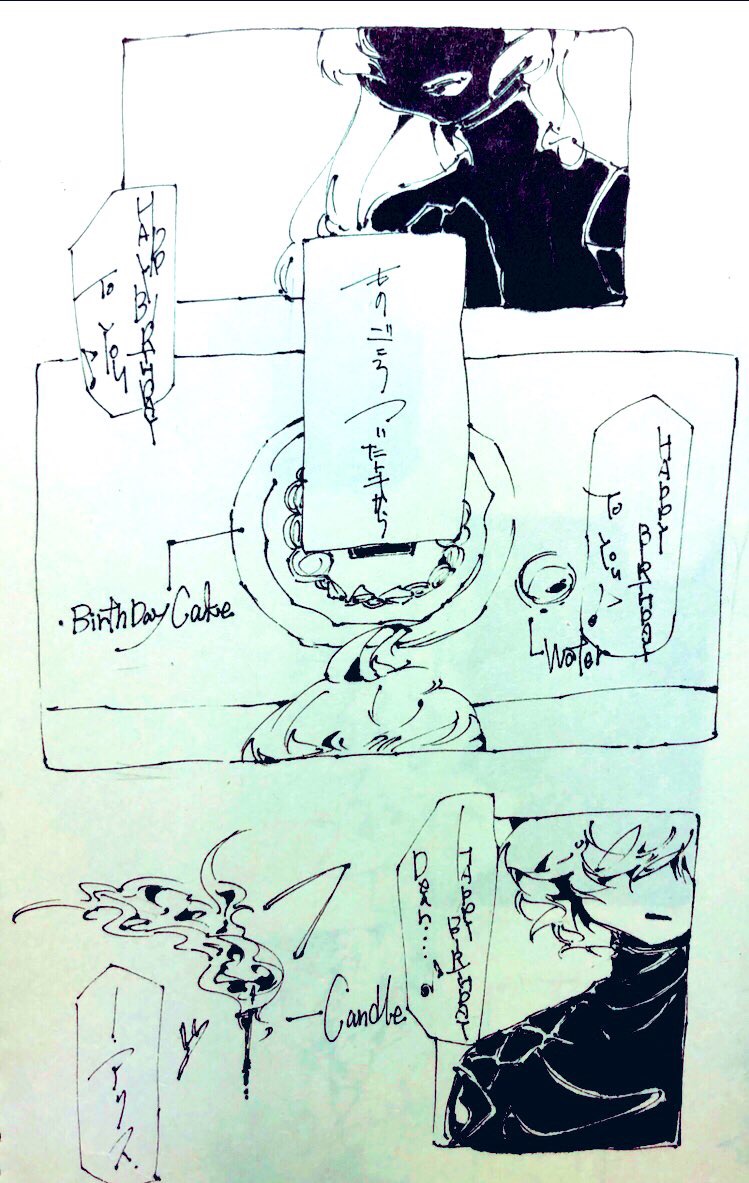 HAPPY BIRTHDAY
TO YOU♪
ものごころ
HAPPY BIRTHDAY
TO YOU♪
BirthDay Cake
Water
HAPPY BIRTHDAY
Dear....♪
Candle
アリス